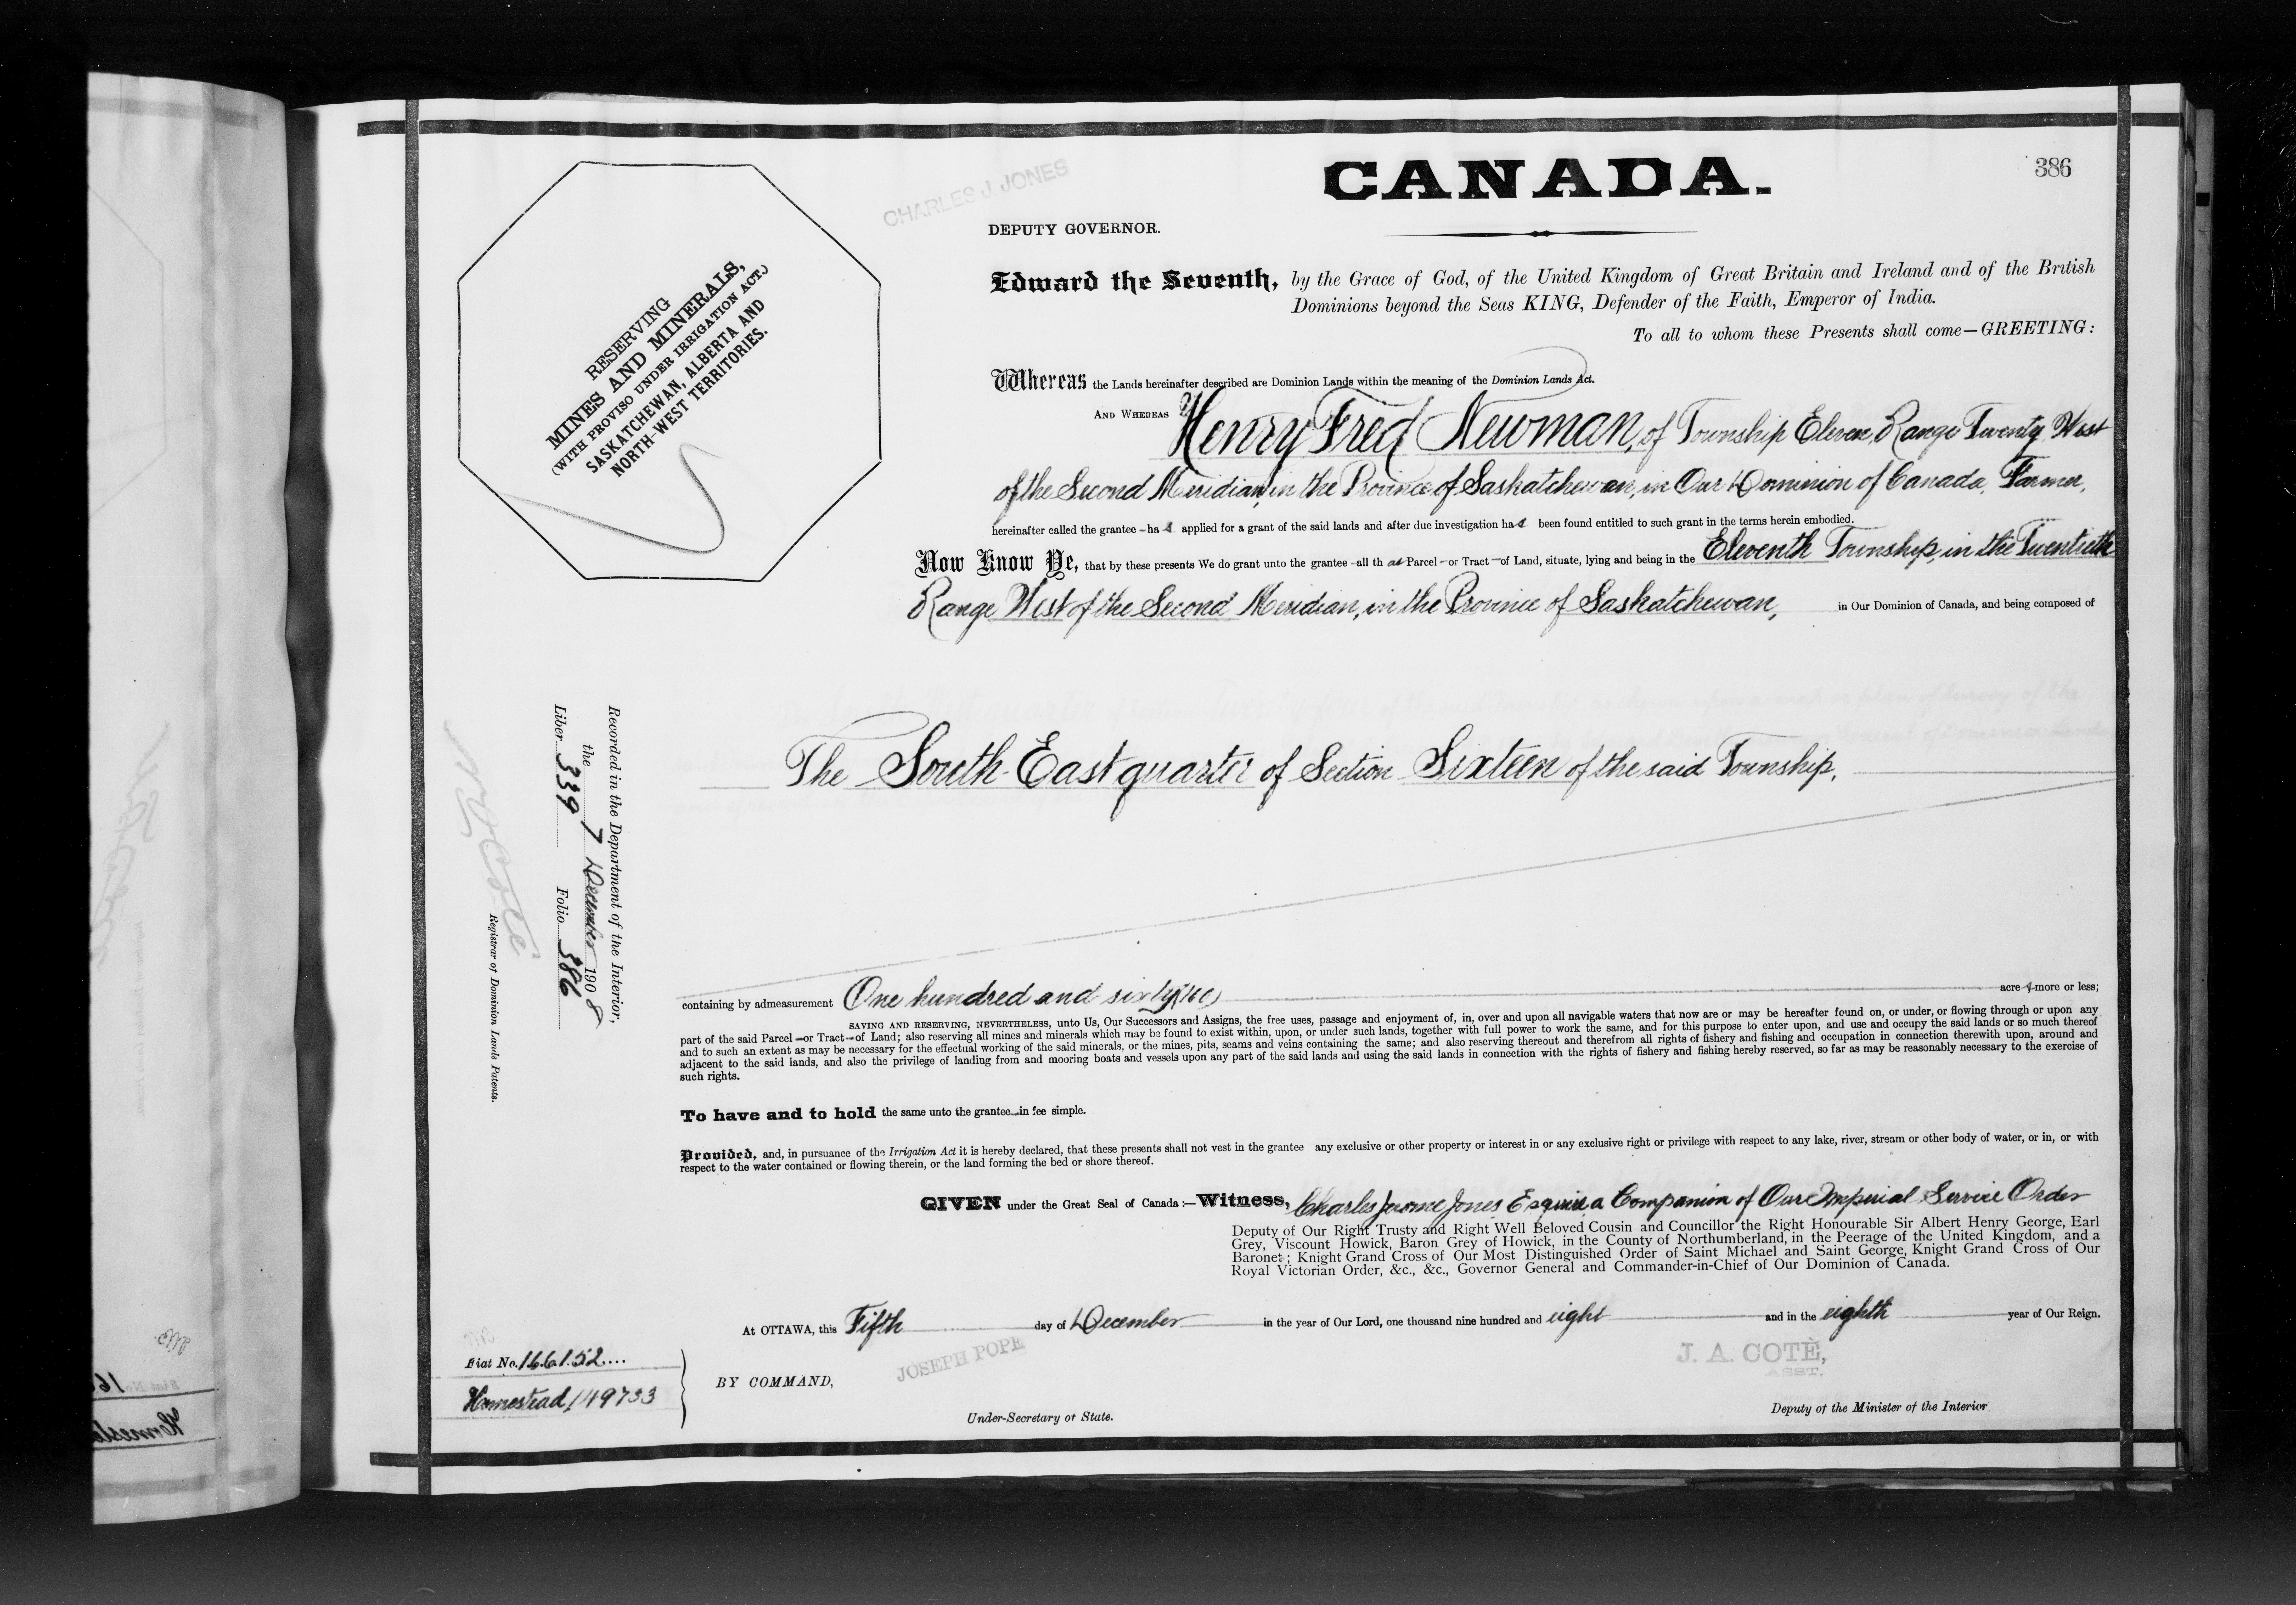 CANADA.
386
CHARLES J. JONES
DEPUTY GOVERNOR.
RESERVING
MINES AND MINERALS,
(WITH PROVISO UNDER IRRIGATION ACT.)
SASKATCHEWAN, ALBERTA AND
NORTH-WEST TERRITORIES.
Edward the Seventh, by the Grace of God, of the United Kingdom of Great Britain and Ireland and of the British
Dominions beyond the Seas KING, Defender of the Faith, Emperor of India.
To all to whom these Presents shall come—GREETING:
Whereas the Lands hereinafter described are Dominion Lands within the meaning of the Dominion Lands Act.
AND WHEREAS Henry Fred Newman, of Township Eleven, Range Twenty West
of the Second Meridian, in the Province of Saskatchewan, in Our Dominion of Canada, Farmer,
hereinafter called the grantee – has applied for a grant of the said lands and after due investigation has been found entitled to such grant in the terms herein embodied.
Now Know Ye, that by these presents We do grant unto the grantee – all that Parcel – or Tract – of Land, situate, lying and being in the Eleventh Township, in the Twentieth
Range West of the Second Meridian, in the Province of Saskatchewan, in Our Dominion of Canada, and being composed of
The South East quarter of Section Sixteen of the said Township,
Recorded in the Department of the Interior,
the 7 December 1908
Liber 339 Folio 386
N O Coté
Registrar of Dominion Lands Patents.
containing by admeasurement One hundred and sixty (160) acres more or less;
SAVING AND RESERVING, NEVERTHELESS, unto Us, Our Successors and Assigns, the free uses, passage and enjoyment of, in, over and upon all navigable waters that now are or may be hereafter found on, or under, or flowing through or upon any
part of the said Parcel – or Tract – of Land; also reserving all mines and minerals which may be found to exist within, upon, or under such lands, together with full power to work the same, and for this purpose to enter upon, and use and occupy the said lands or so much thereof
and to such an extent as may be necessary for the effectual working of the said minerals, or the mines, pits, seams and veins containing the same; and also reserving thereout and therefrom all rights of fishery and fishing and occupation in connection therewith upon, around and
adjacent to the said lands, and also the privilege of landing from and mooring boats and vessels upon any part of the said lands and using the said lands in connection with the rights of fishery and fishing hereby reserved, so far as may be reasonably necessary to the exercise of
such rights.
To have and to hold the same unto the grantee – in fee simple.
Provided, and, in pursuance of the Irrigation Act it is hereby declared, that these presents shall not vest in the grantee any exclusive or other property or interest in or any exclusive right or privilege with respect to any lake, river, stream or other body of water, or in, or with
respect to the water contained or flowing therein, or the land forming the bed or shore thereof.
GIVEN under the Great Seal of Canada:—Witness, Charles Jerome Jones Esquire a Companion of Our Imperial Service Order
Deputy of Our Right Trusty and Right Well Beloved Cousin and Councillor the Right Honourable Sir Albert Henry George, Earl
Grey, Viscount Howick, Baron Grey of Howick, in the County of Northumberland, in the Peerage of the United Kingdom, and a
Baronet; Knight Grand Cross of Our Most Distinguished Order of Saint Michael and Saint George, Knight Grand Cross of Our
Royal Victorian Order, &c., &c., Governor General and Commander-in-Chief of Our Dominion of Canada.
At OTTAWA, this Fifth day of December in the year of Our Lord, one thousand nine hundred and eight and in the eighth year of Our Reign.
Fiat No. 166152....
Homestead 149733
BY COMMAND,
JOSEPH POPE
Under-Secretary of State.
J. A. COTÈ,
ASST.
Deputy of the Minister of the Interior